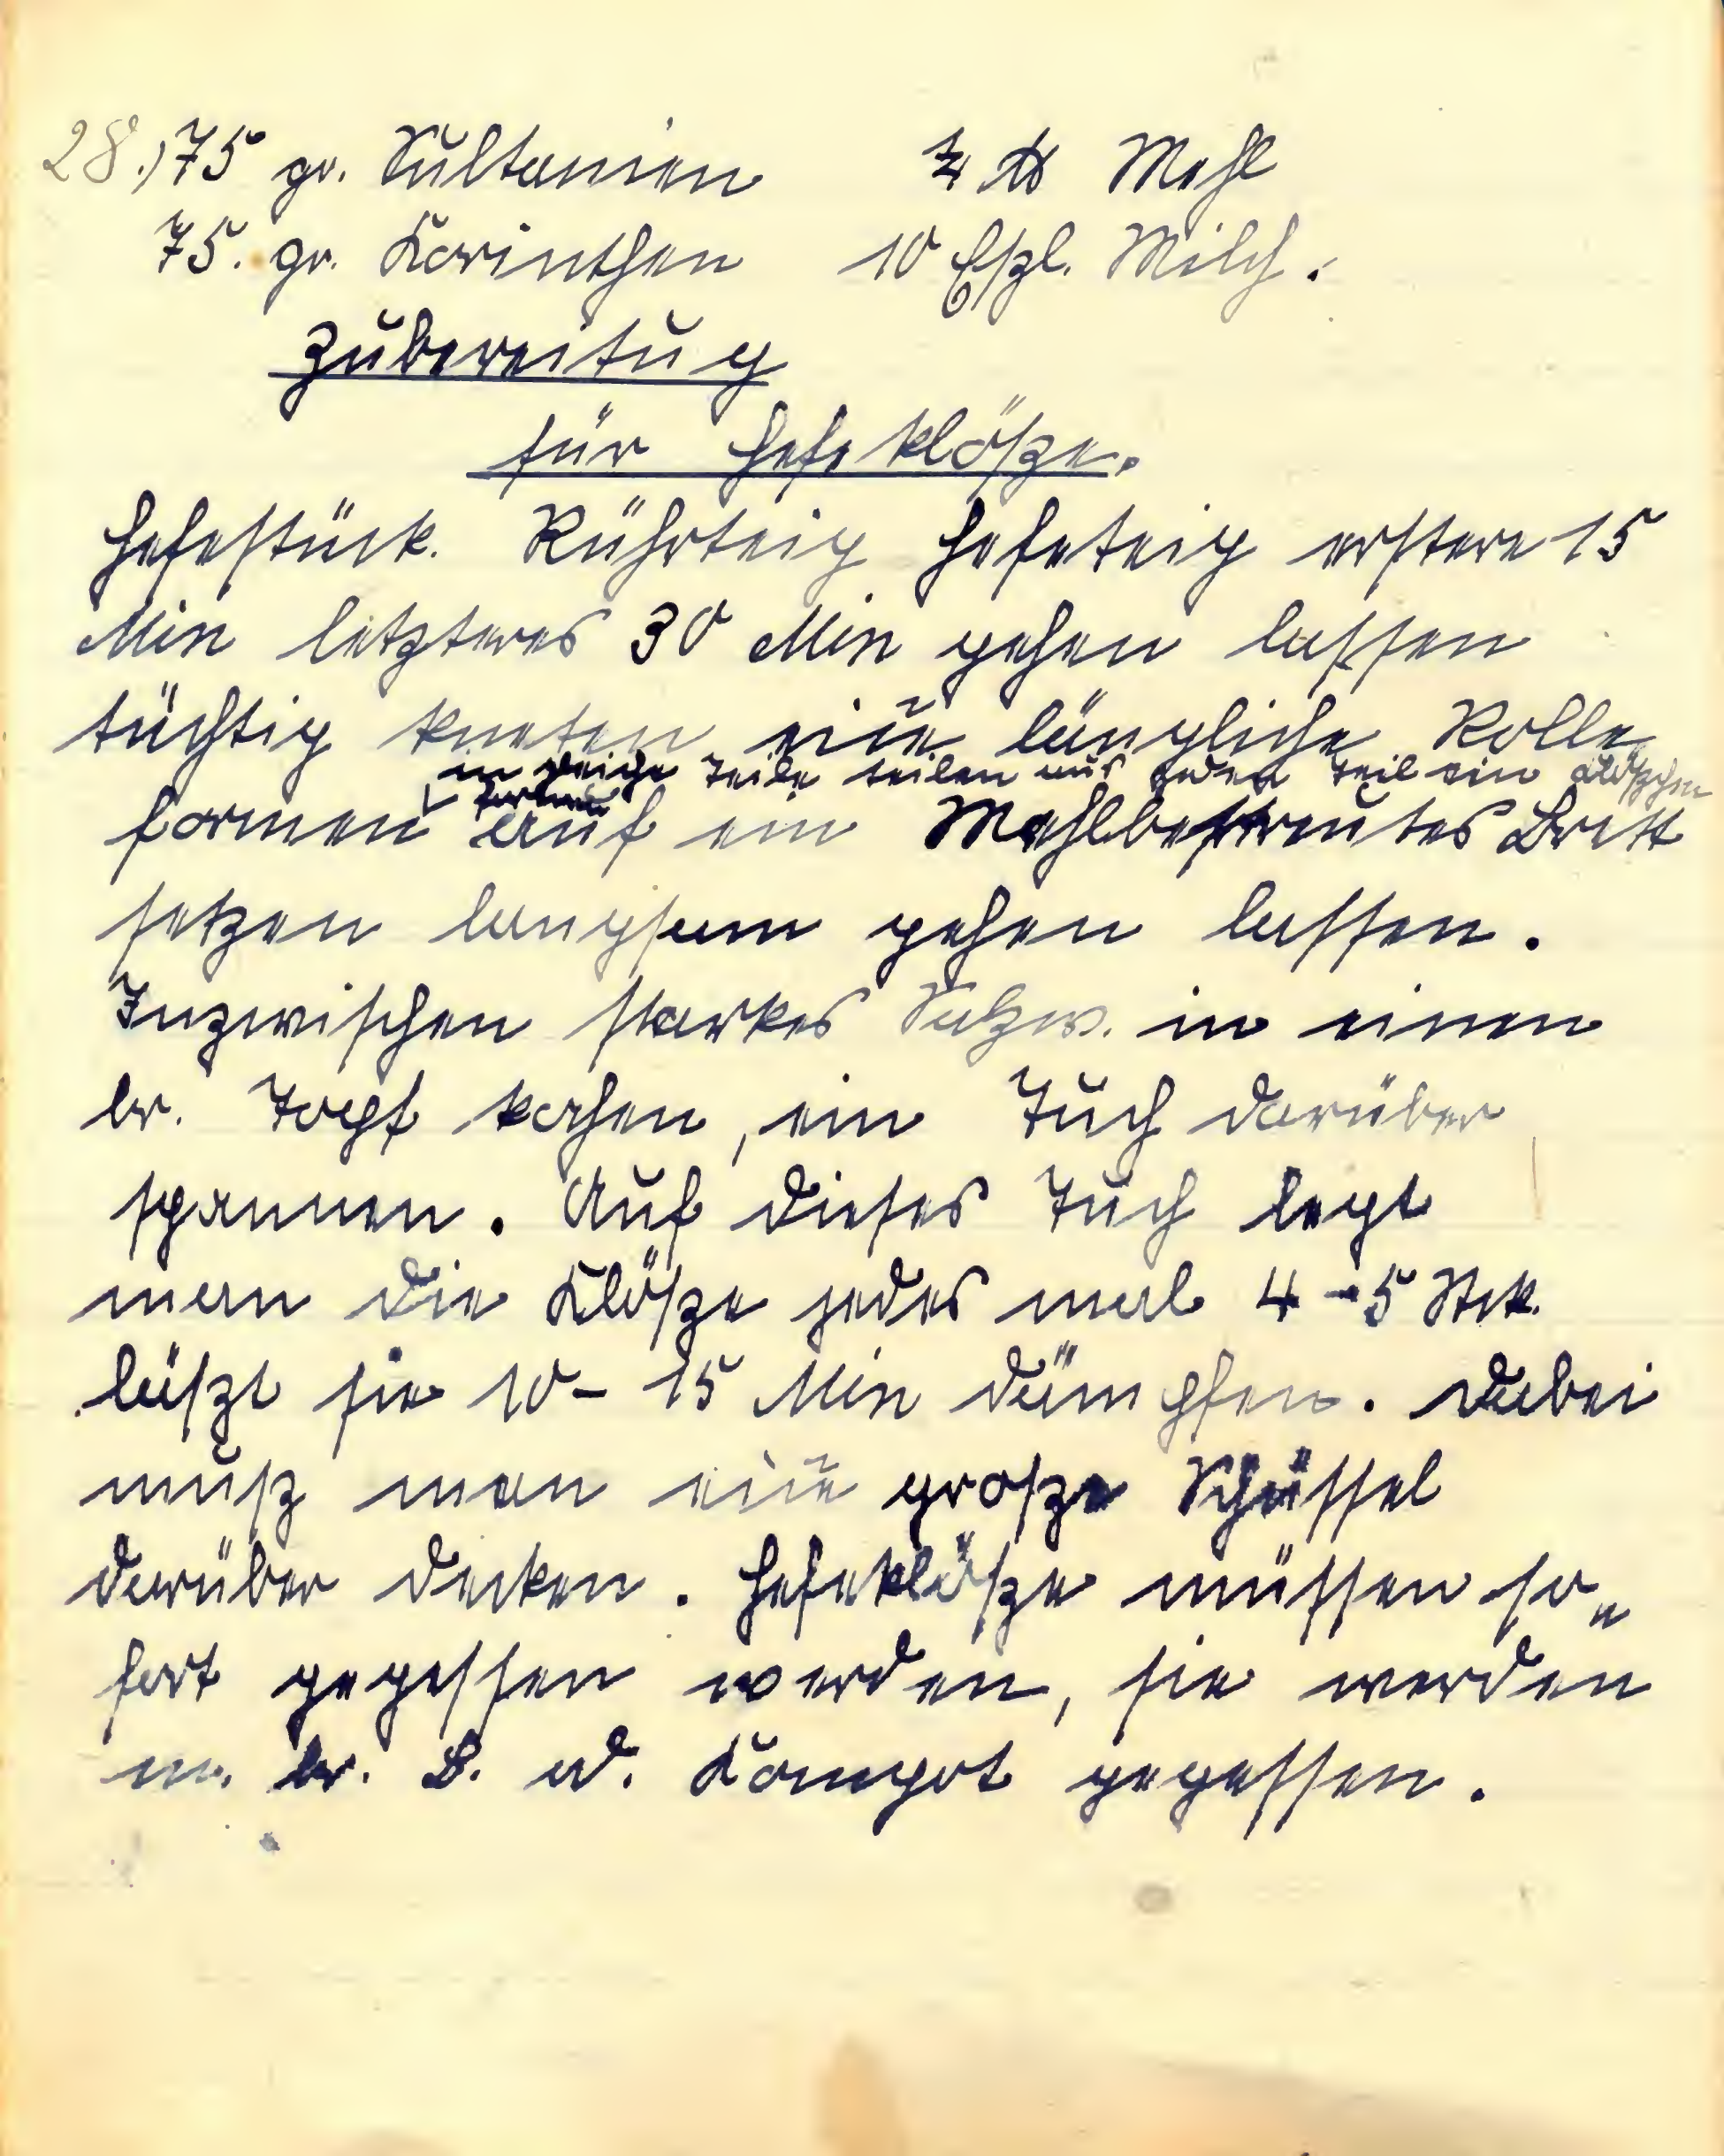 28.) 75 gr. Sultanien ¾ ℔ Mehl
75. gr. Korinthen 10 Eßl. Milch.
Zubereitug
für Hefeklösze.
Hefestück. Rührteig Hefeteig erstere 15
Min letzteres 30 Min gehen lassen
tüchtig kneten eine längliche Rolle
in gleiche Teile teilen aus jeden Teil ein Klöszchen
formen
formen auf ein Mehlbestreutes Brett
setzen langsam gehen lassen.
Inzwischen starkes Salzw. in einen
br. Topf kochen, ein Tuch darüber
spannen. Auf dieses Tuch legt
man die Klösze jedes mal 4-5 Stck.
läszt sie 10-15 Min dämpfen. Dabei
musz man eine grosze Schüssel
darüber decken. Hefeklösze müssen so„
fort gegessen werden, sie werden
m. br. B. od. Kompot gegessen.